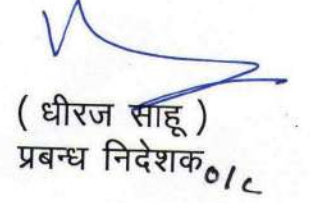 ( धीरज साहू )
प्रबन्ध निदेशक o/c